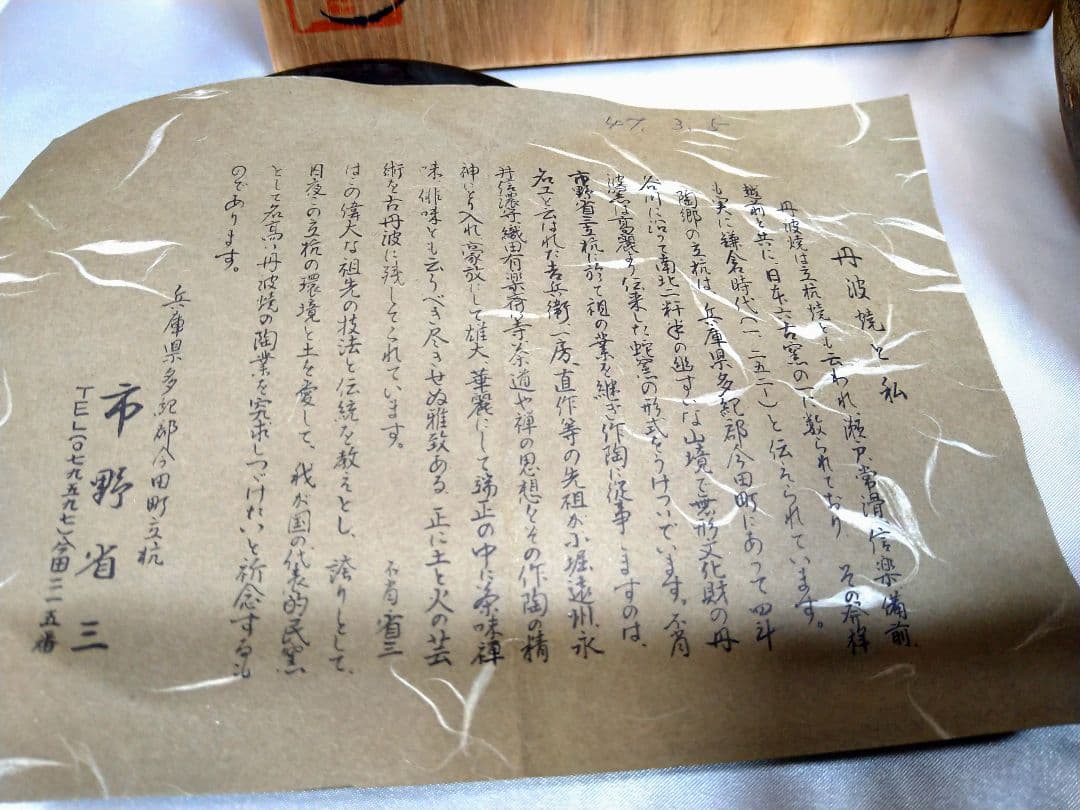 47. 3. 5
丹波焼と私
丹波焼は立杭焼とも云われ瀬戸、常滑、信楽、備前、
越前と共に日本六古窯の一に数えられており その発祥
も実に鎌倉時代(一、二五二)と伝えられています。
陶郷の立杭は、兵庫県多紀郡今田町にあって四斗
谷川に沿って南北二粁半の幽すいな山境で無形文化財の丹
波窯は高麗より伝来した蛇窯の形式をうけついでいます。不肖
市野省三立杭に於て祖の業を継ぎ作陶に従事 しますのは、
名工と云はれた吉兵衛、一房、直作等の先祖が小堀遠州、永
井信濃守、織田有楽斎等茶道や禅の思想をその作陶の精
神にとり入れ豪放にして雄大、華麗にして端正の中に茶味禅
味、俳味とも云うべき尽きせぬ雅致ある、正に土と火の芸
術を古丹波に残してくれています。
不肖省三
はこの偉大な祖先の技法と伝統を教えとし、誇りとして、
日夜この立杭の環境と土を愛して、我が国の代表的民窯
として名高い丹波焼の陶業を究求しつゞけたいと祈念するも
のであります。
兵庫県多紀郡今田町立杭
市野省三
TEL(〇七九五九七)今田二一五番